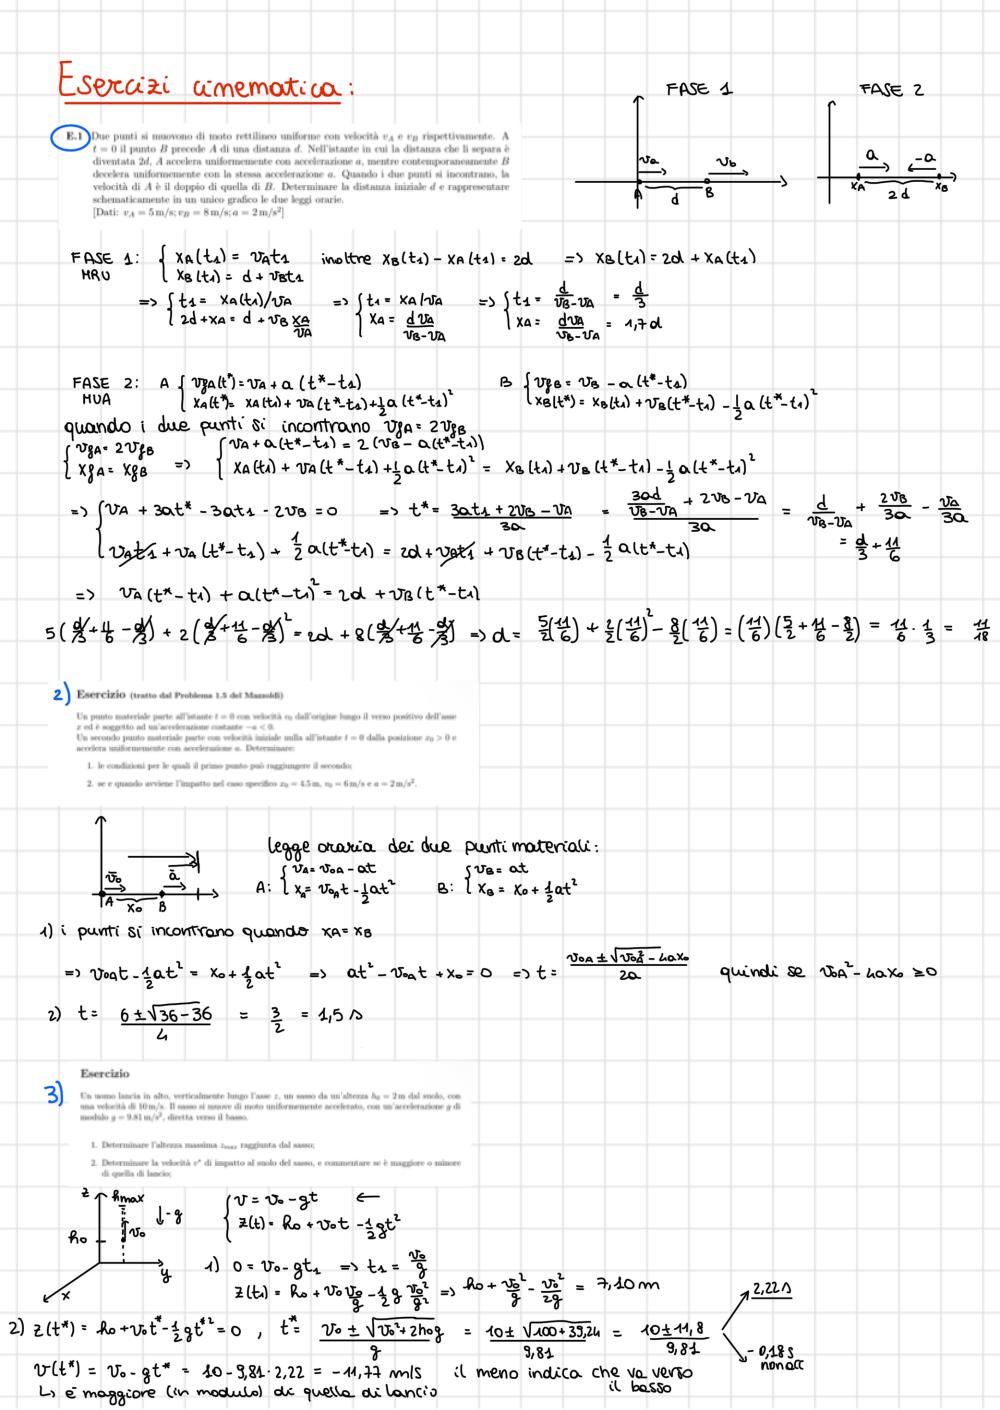 Esercizi cinematica:
FASE 1
FASE 2
E.1 Due punti si muovono di moto rettilineo uniforme con velocità v_A e v_B rispettivamente. A
t = 0 il punto B precede A di una distanza d. Nell'istante in cui la distanza che li separa è
diventata 2d, A accelera uniformemente con accelerazione a, mentre contemporaneamente B
decelera uniformemente con la stessa accelerazione a. Quando i due punti si incontrano, la
velocità di A è il doppio di quella di B. Determinare la distanza iniziale d e rappresentare
schematicamente in un unico grafico le due leggi orarie.
[Dati: v_A = 5 m/s; v_B = 8 m/s; a = 2 m/s²]
va vb
A d B
a -a
xA 2d xB
FASE 1: { xA(t1) = vAt1 inoltre xB(t1) - xA(t1) = 2d => xB(t1) = 2d + xA(t1)
MRU { xB(t1) = d + vBt1
=> { t1 = xA(t1)/vA => { t1 = xA/vA => { t1 = d/(vB-vA) = d/3
{ 2d+xA = d + vB xA/vA { xA = dvA/(vB-vA) { xA = dvA/(vB-vA) = 1,7d
FASE 2: A { vfA(t*) = vA + a(t*-t1) B { vfB = vB - a(t*-t1)
MUA { xA(t*) = xA(t1) + vA(t*-t1) + 1/2 a(t*-t1)² { xB(t*) = xB(t1) + vB(t*-t1) - 1/2 a(t*-t1)²
quando i due punti si incontrano vfA = 2vfB
{ vfA = 2vfB => { vA + a(t*-t1) = 2(vB - a(t*-t1))
{ xfA = xfB { xA(t1) + vA(t*-t1) + 1/2 a(t*-t1)² = xB(t1) + vB(t*-t1) - 1/2 a(t*-t1)²
=> { vA + 3at* - 3at1 - 2vB = 0 => t* = (3at1 + 2vB - vA)/3a = (3ad/(vB-vA) + 2vB - vA)/3a = d/(vB-vA) + 2vB/3a - vA/3a
{ vAt1 + vA(t*-t1) + 1/2 a(t*-t1) = 2d + vAt1 + vB(t*-t1) - 1/2 a(t*-t1) = d/3 + 11/6
=> vA(t*-t1) + a(t*-t1)² = 2d + vB(t*-t1)
5(d/3+11/6-d/3) + 2(d/3+11/6-d/3)² = 2d + 8(d/3+11/6-d/3) => d = 5/2(11/6) + 2/2(11/6)² - 8/2(11/6) = (11/6)(5/2+11/6-8/2) = 11/6 · 1/3 = 11/18
2) Esercizio (tratto dal Problema 1.5 del Mazzoldi)
Un punto materiale parte all'istante t = 0 con velocità v0 dall'origine lungo il verso positivo dell'asse
x ed è soggetto ad un'accelerazione costante −a < 0.
Un secondo punto materiale parte con velocità iniziale nulla all'istante t = 0 dalla posizione x0 > 0 e
accelera uniformemente con accelerazione a. Determinare:
1. le condizioni per le quali il primo punto può raggiungere il secondo;
2. se e quando avviene l'impatto nel caso specifico x0 = 4.5 m, v0 = 6 m/s e a = 2 m/s².
v0 a
A x0 B
legge oraria dei due punti materiali:
A: { vA = v0A - at B: { vB = at
{ xA = v0At - 1/2 at² { xB = x0 + 1/2 at²
1) i punti si incontrano quando xA = xB
=> v0At - 1/2 at² = x0 + 1/2 at² => at² - v0At + x0 = 0 => t = (v0A ± √(v0A² - 4ax0))/2a quindi se v0A² - 4ax0 ≥ 0
2) t = (6 ± √(36-36))/4 = 3/2 = 1,5 s
3) Esercizio
Un uomo lancia in alto, verticalmente lungo l'asse z, un sasso da un'altezza h0 = 2 m dal suolo, con
una velocità di 10 m/s. Il sasso si muove di moto uniformemente accelerato, con un'accelerazione g di
modulo g = 9.81 m/s², diretta verso il basso.
1. Determinare l'altezza massima z_max raggiunta dal sasso;
2. Determinare la velocità v* di impatto al suolo del sasso, e commentare se è maggiore o minore
di quella di lancio;
z hmax ↓-g
h0 v0
y
x
{ v = v0 - gt ←
{ z(t) = h0 + v0t - 1/2 gt²
1) 0 = v0 - gt1 => t1 = v0/g
z(t1) = h0 + v0 v0/g - 1/2 g v0²/g² => h0 + v0²/g - v0²/2g = 7,10 m
2) z(t*) = h0 + v0t* - 1/2 gt*² = 0, t* = (v0 ± √(v0²+2h0g))/g = (10 ± √(100+39,24))/9,81 = (10 ± 11,8)/9,81
2,22 s
-0,18 s
non acc
v(t*) = v0 - gt* = 10 - 9,81 · 2,22 = -11,77 m/s il meno indica che va verso
il basso
↳ è maggiore (in modulo) di quella di lancio